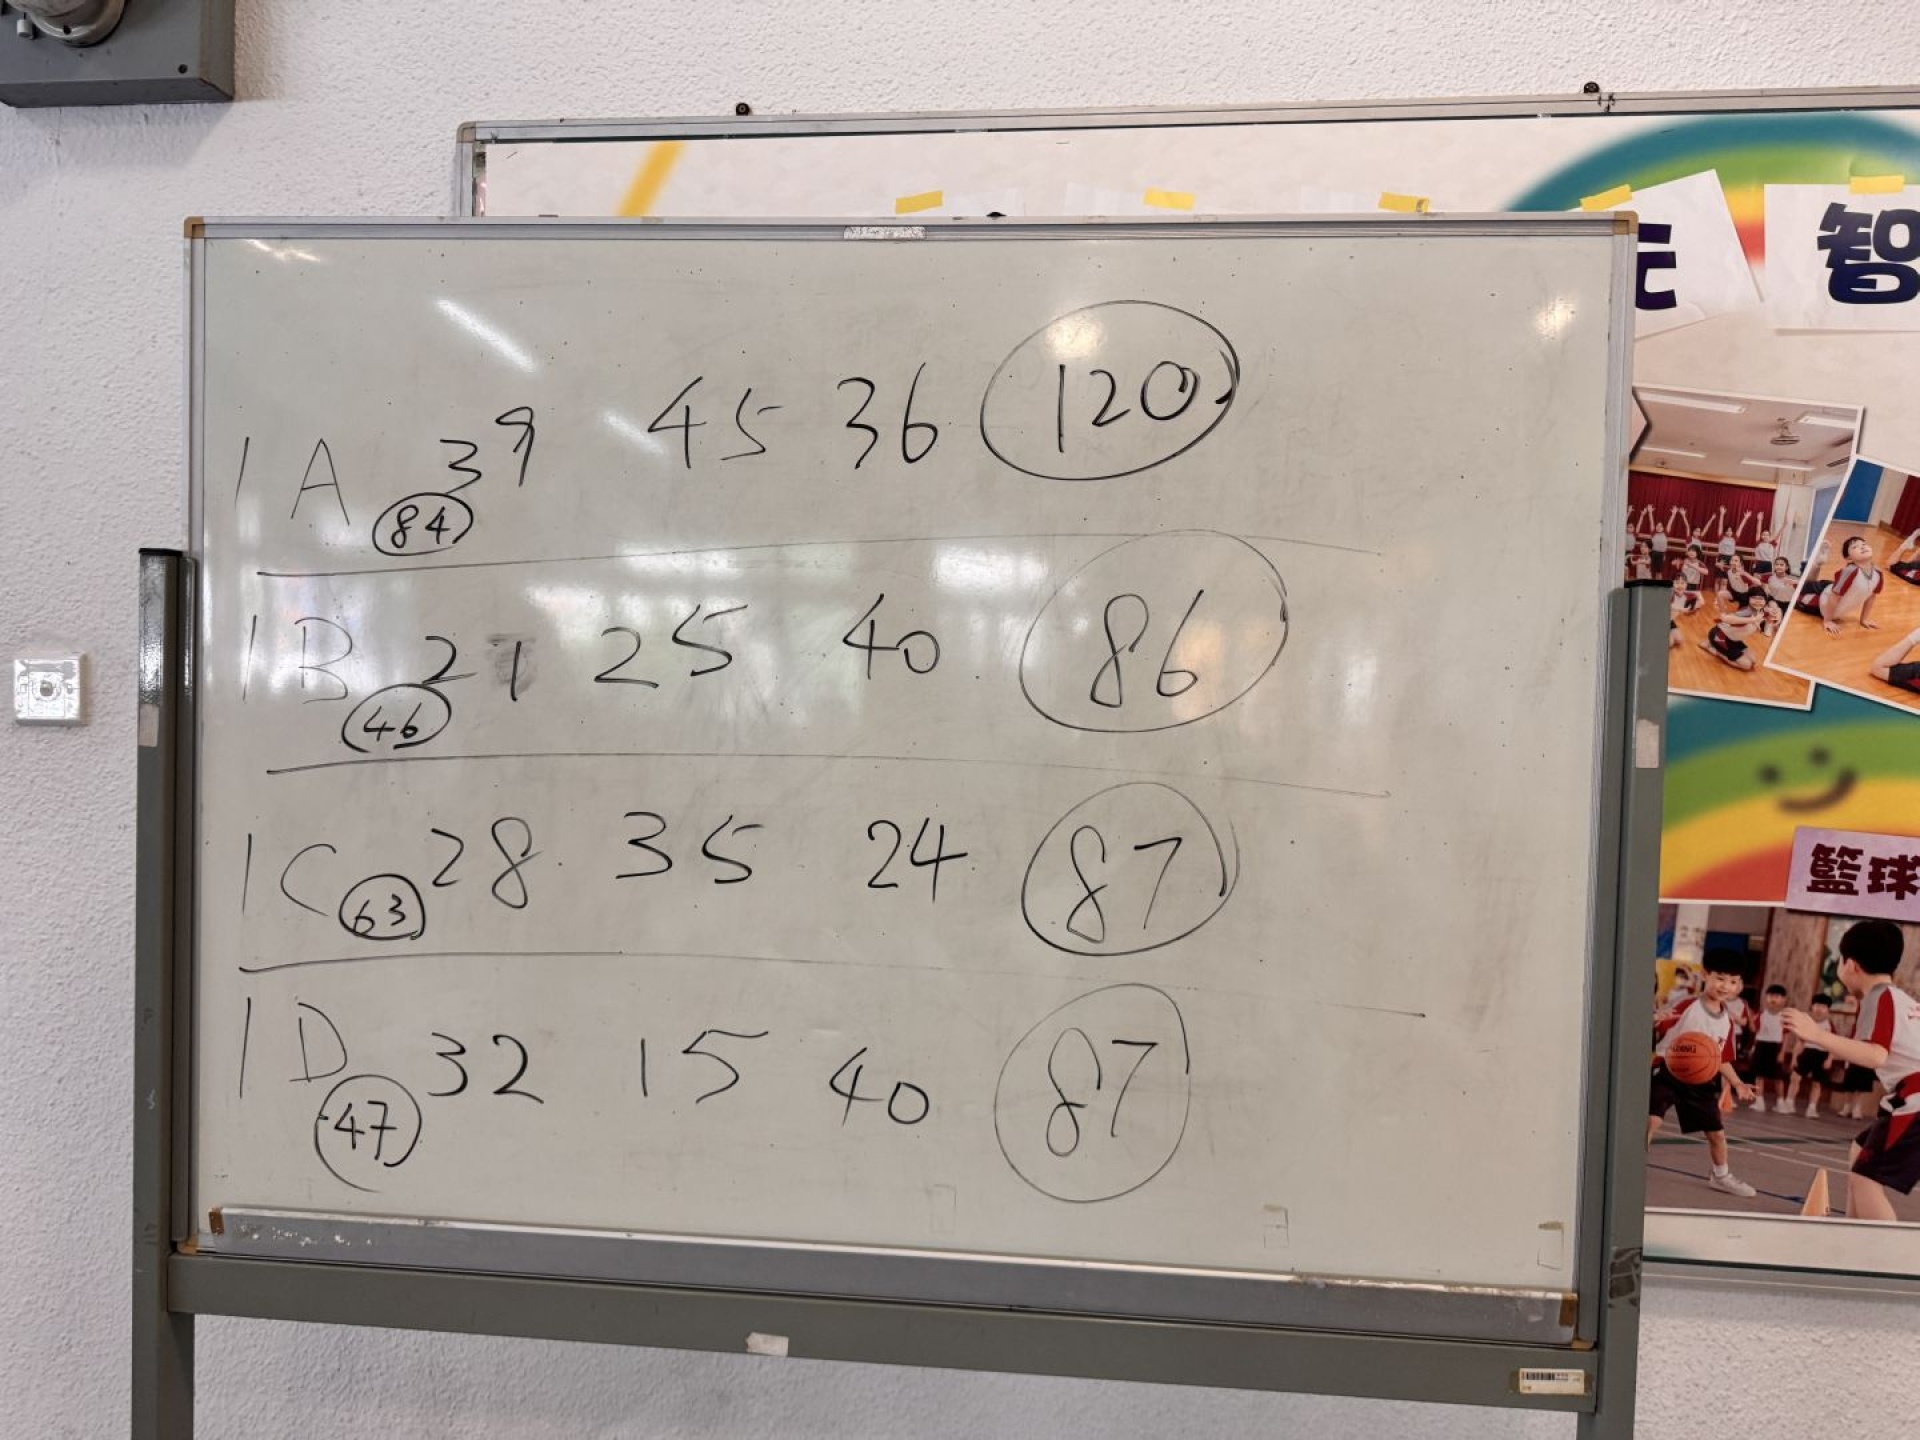 元 智
1A 39 45 36 120
84
1B 21 25 40 86
46
1C 28 35 24 87
63
籃球
1D 32 15 40 87
47